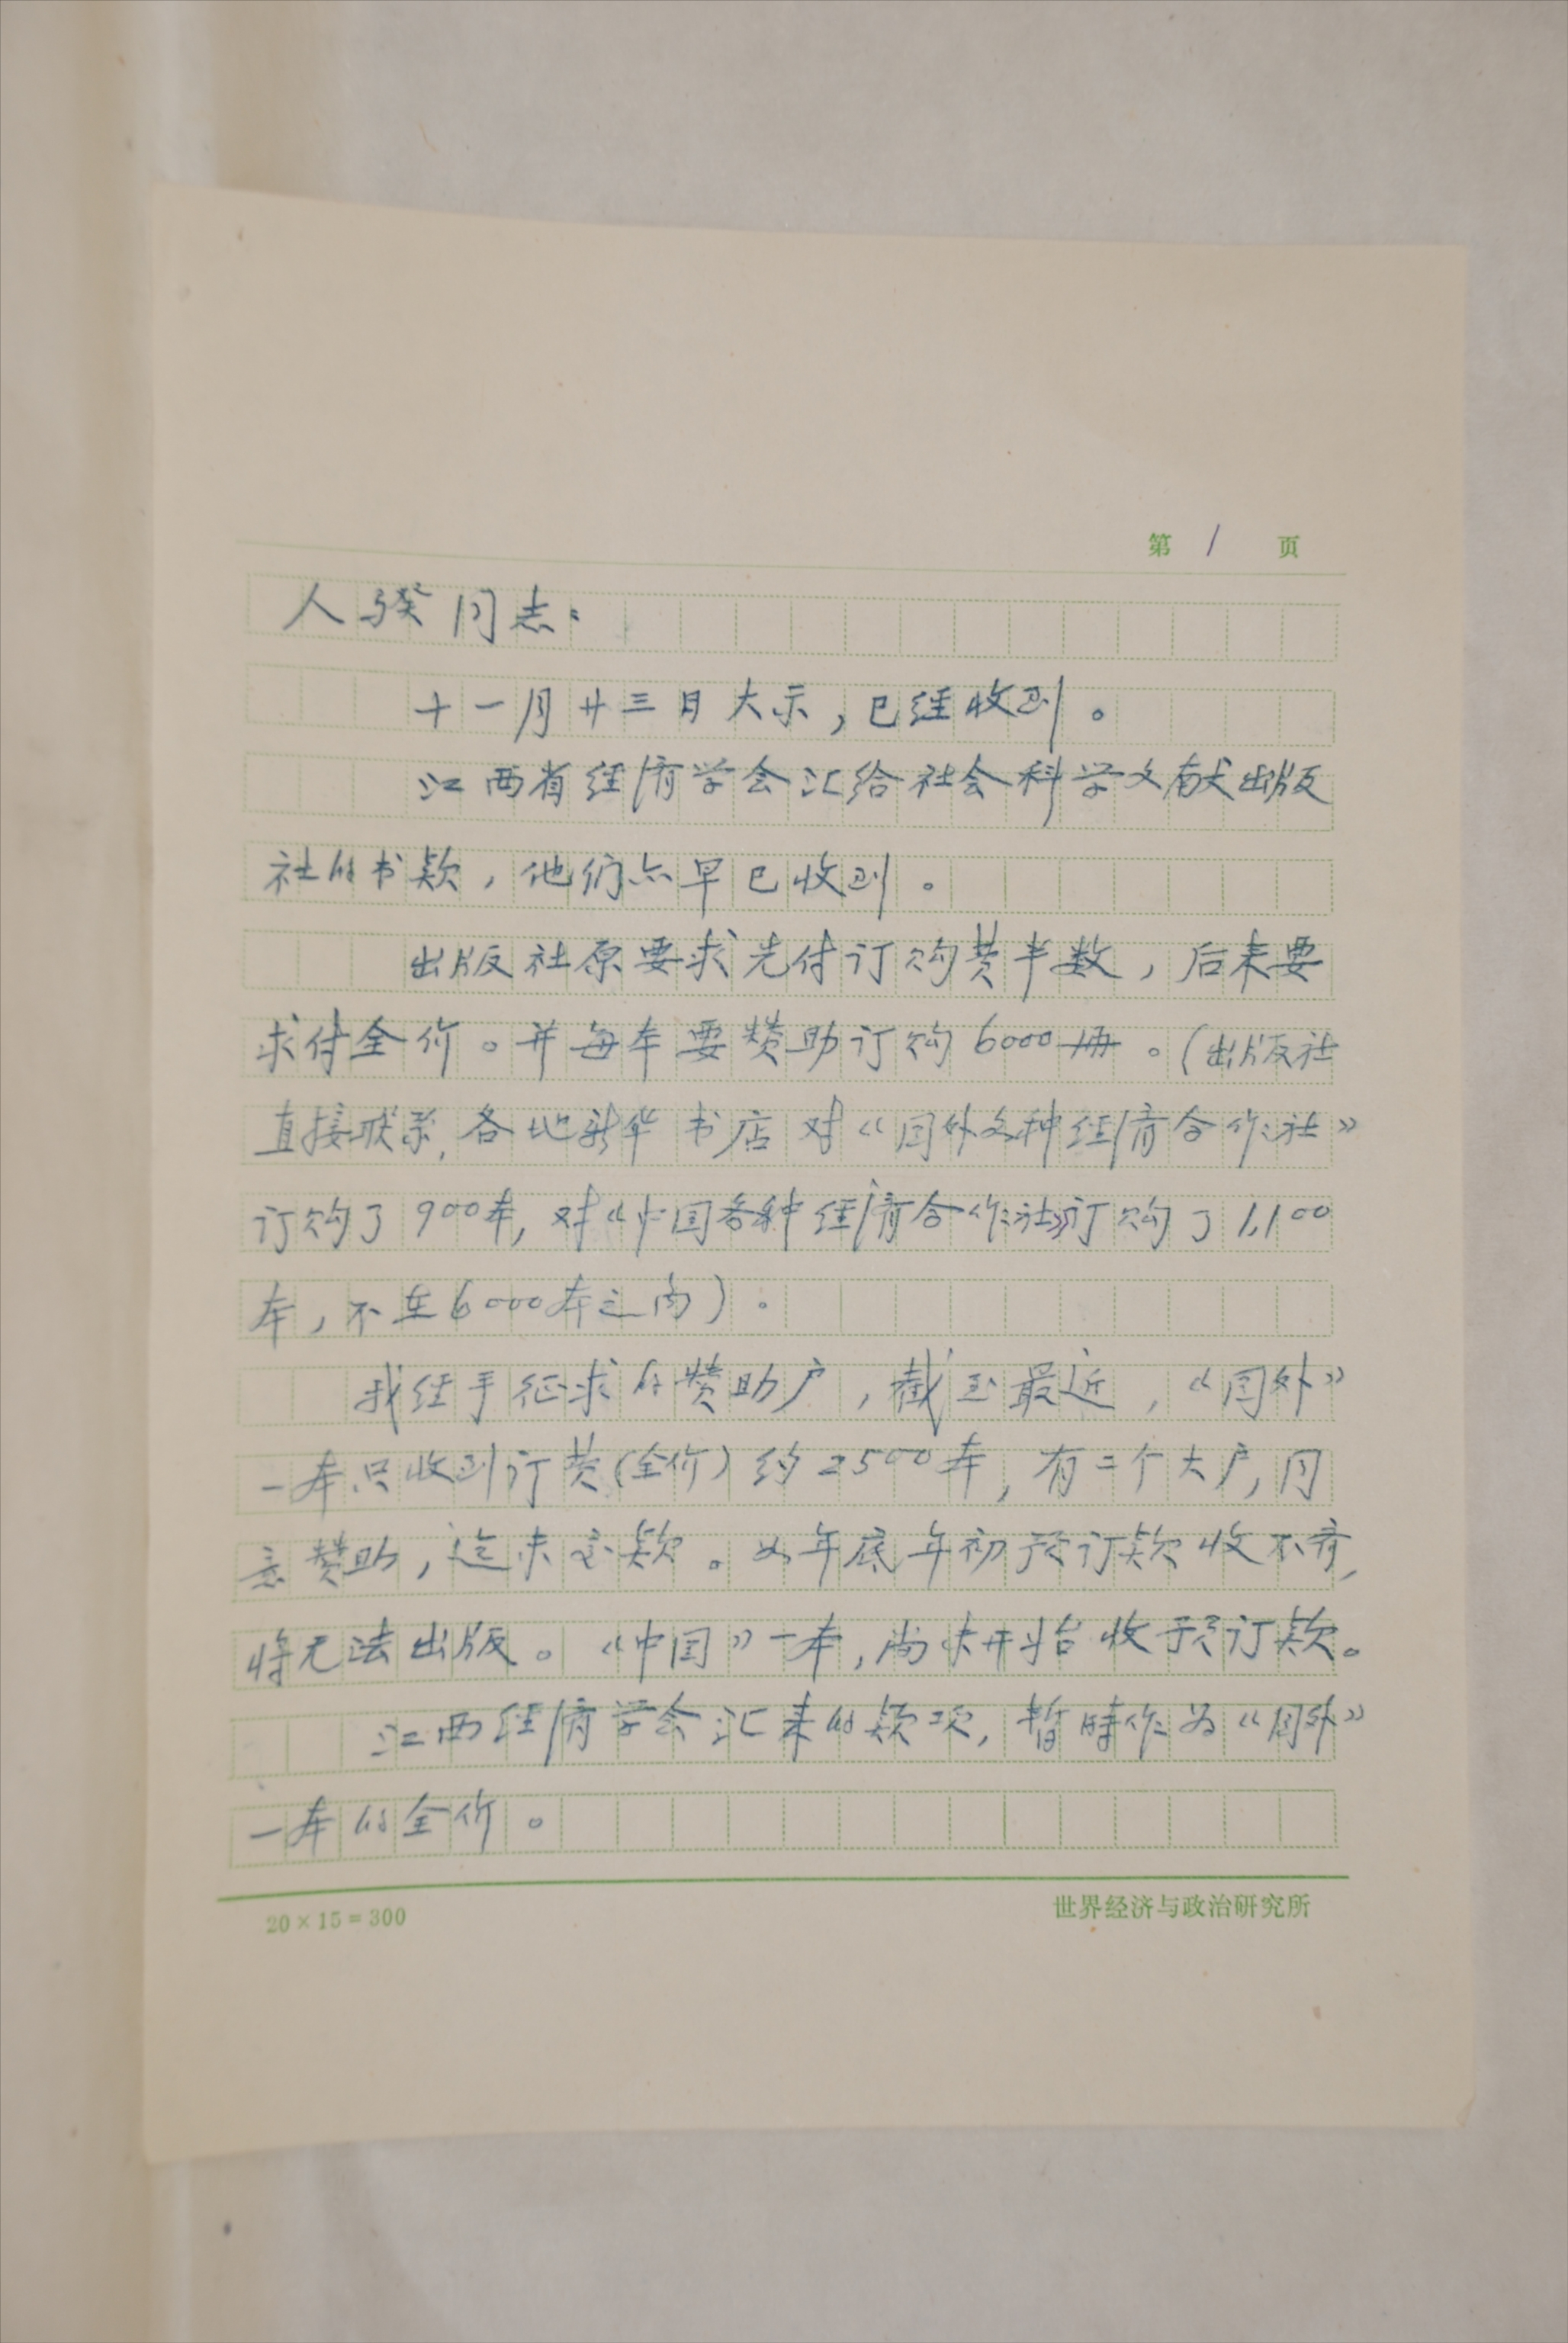 第 1 页
人骙同志：
十一月廿三日大示，已经收到。
江西省经济学会汇给社会科学文献出版
社的书款，他们亦早已收到。
出版社原要求先付订购费半数，后来要
求付全价。并每本要赞助订购6000册。（出版社
直接联系，各地新华书店对《国外各种经济合作社》
订购了900本，对《中国各种经济合作社》订购了1,100
本，不在6000本之内）。
我经手征求的赞助户，截至最近，《国外》
一本只收到订费（全价）约2500本，有二个大户，同
意赞助，迄未交款。如年底年初预订款收不齐，
将无法出版。《中国》一本，尚未开始收预订款。
江西经济学会汇来的款项，暂时作为《国外》
一本的全价。
20×15=300
世界经济与政治研究所